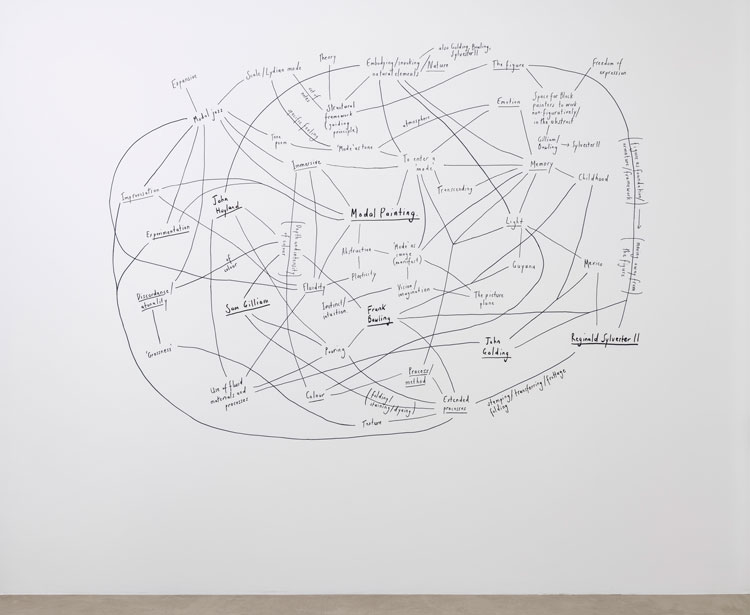 also Golding, Bowling,
Sylvester II
Theory
Embodying/invoking
natural elements
/Nature
The figure
Freedom of
expression
Scale/Lydian mode
Expansive
set of
notes
Structural
framework
(guiding
principle)
Space for Black
painters to work
non-figuratively/
in the abstract
Emotion
Modal jazz
atmosphere
specific feeling
Tone
poem
'Mode' as tone
Gilliam/
Bowling
→ Sylvester II
Immersive
To enter a
mode
Memory
Childhood
(figure as foundation/
armature/framework
→
moves away from
the figure)
Transcending
Improvisation
John
Hoyland
Modal Painting
Light
Experimentation
(Depth and intensity
of colour)
Abstraction
'Mode' as
image
(manifest)
of
colour
Guyana
Mexico
Plasticity
Fluidity
Vision/
imagination
The picture
plane
Discordance/
atonality
Sam Gilliam
Instinct/
intuition
Frank
Bowling
John
Golding
Reginald Sylvester II
'Grossness'
Pouring
Process/
method
Use of fluid
materials and
processes
Colour
(folding/
staining/dyeing)
Extended
processes
stamping/transferring/frottage
folding
Texture